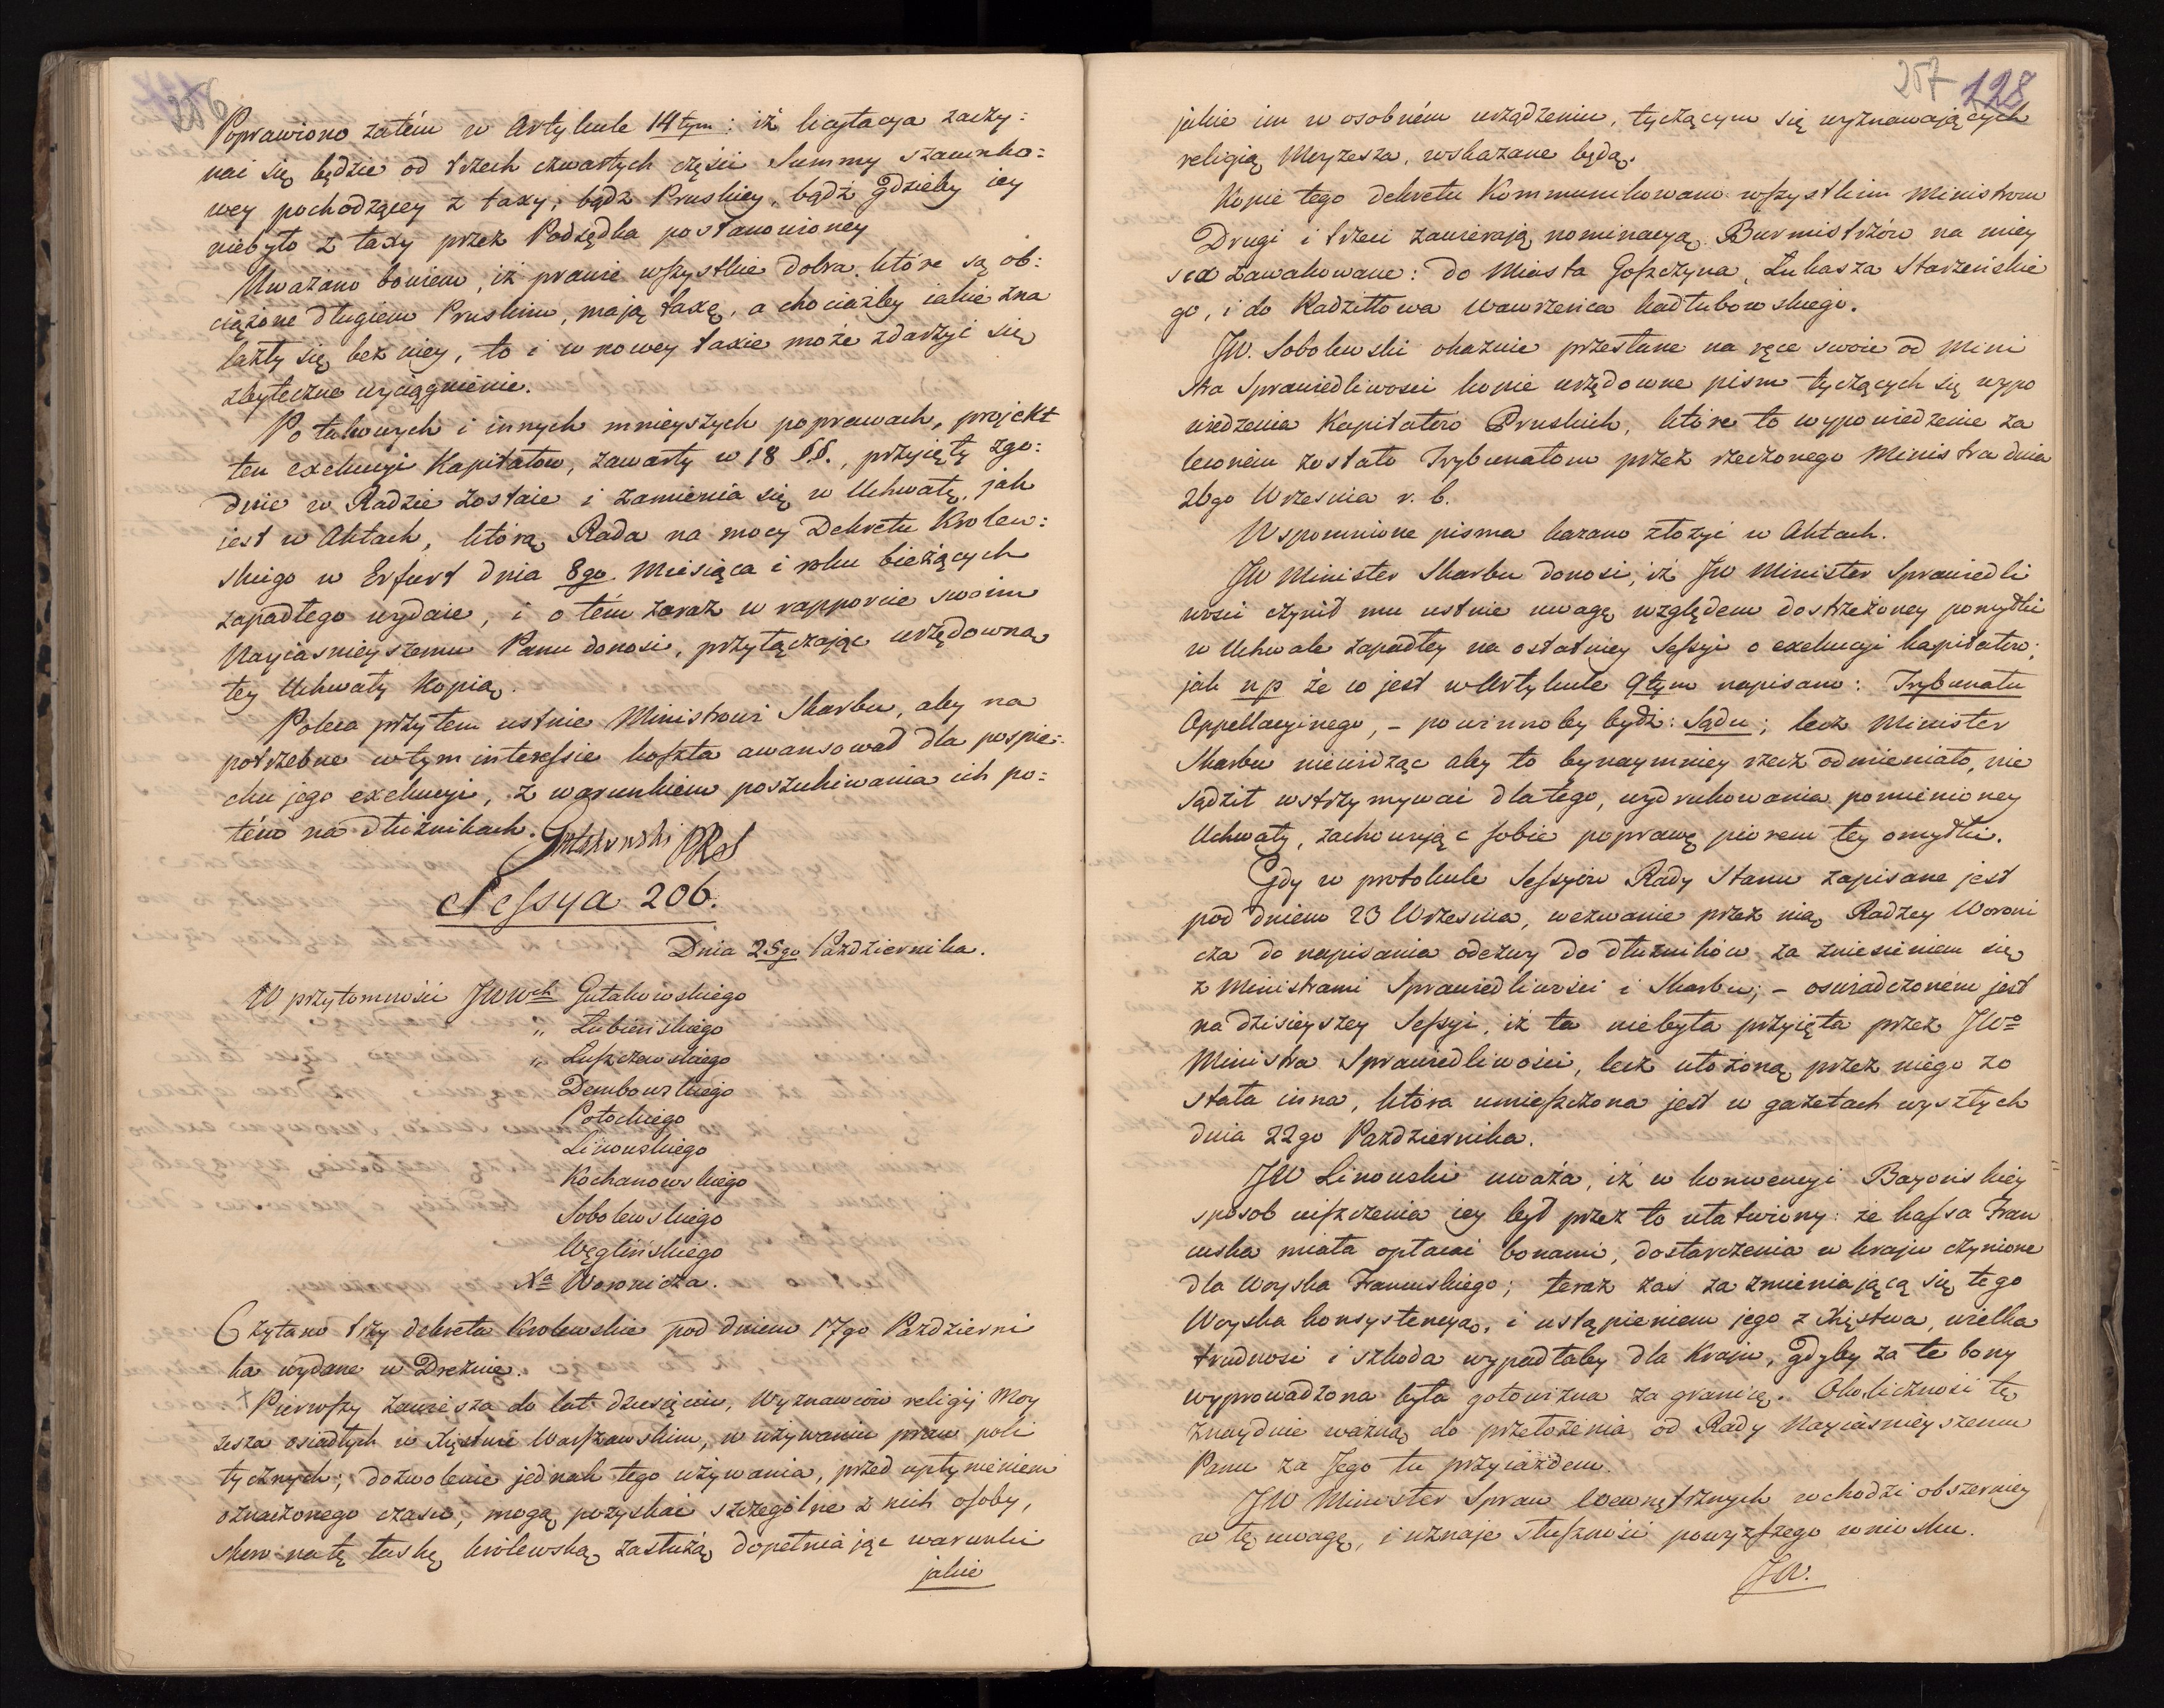 256
Poprawiono zatém w Artykule 14tym: iż licytacya zaczy:
nać się będzie od trzech czwartych części Summy szacunko:
wey pochodzącey z taxy, bądź Pruskiey, bądź gdzieby iey
niebyło z taxy przez Podsędka postanowioney
Uważano bowiem, iż prawie wszystkie dobra, które są ob:
ciążone długiem Pruskim, mają taxę, a chociażby iakie zna
lazły się bez niey, to i w nowey taxie może zdarzyć się
zbyteczne wyciągnienie.
Po takowych i innych mnieyszych poprawach, projekt
ten exekucyi Kapitałow, zawarty w 18 §§., przyięty zgo:
dnie w Radzie zostaie i zamienia się w Uchwałę, jak
jest w Aktach, którą Rada na mocy Dekretu Krolew:
skiego w Erfurt dnia 8go Miesiąca i roku bieżących
zapadłego wydaie, i o tém zaraz w rapporcie swoim
Nayiasnieyszemu Panu donosi, przyłączając urzędowną
tey Uchwały kopią.
Poleca przytem ustnie Ministrowi Skarbu, aby na
potrzebne w tym interessie koszta awansował dla pospie:
chu jego exekucyi, z warunkiem poszukiwania ich po:
tém na dłużnikach. Gutakowski PRS
Sessya 206.
Dnia 25go Października.
W przytomności JWWch Gutakowskiego
" Łubieńskiego
" Łuszczewskiego
Dembowskiego
Potockiego
Linowskiego
Kochanowskiego
Sobolewskiego
Węglińskiego
Xa Woronicza.
Czytano trzy dekreta Krolewskie pod dniem 17go Październi
ka wydane w Dreznie.
+ Pierwszy zawiesza do lat dziesięciu, Wyznawców religii Moy
zesza osiadłych w Xięstwie Warszawskim, w używaniu praw poli
tycznych; dozwolenie jednak tego używania, przed upłynieniem
oznaczonego czasu, mogą pozyskać szczególne z nich osoby,
skoro na tę łaskę królewską zasłużą dopełniając warunki
jakie
257 128
jakie im w osobném urządzeniu, tyczącym się wyznawających
religią Moyzesza, wskazane będą.
Kopie tego dekretu Kommunikowano wszystkim Ministrom
Drugi i trzeci zawierają nominacyą Burmistrzów na miey
sca zawakowane: do Miasta Goszczyna, Łukasza Starzeńskie
go, i do Radziłłowa Wawrzeńca Kadłubowskiego.
JW. Sobolewski okazuie przesłane na ręce swoie od Mini
stra Sprawiedliwosci kopie urzędowne pism tyczących się wypo
wiedzenia Kapitałów Pruskich, które to wypowiedzenie za
leconém zostało Trybunałom przez rzeczonego Ministra dnia
26go Wrzesnia r. b.
Wspomnione pisma kazano złożyć w Aktach.
JW Minister Skarbu donosi, iż JW Minister Sprawiedli
wosci czynił mu ustnie uwagę względem dostrzeżoney pomyłki
w Uchwale zapadłey na ostatniey Sessyi o exekucyi kapitałow;
jak np że co jest w Artykule 9tym napisano: Trybunału
Appellacyinego, – powinnoby bydź: Sądu; lecz Minister
Skarbu niewidząc aby to bynaymniey rzecz odmieniało, nie
sądził wstrzymywać dlatego, wydrukowania pomienioney
Uchwały, zachowując sobie poprawę piorem tey omyłki.
Gdy w protokule Sessyów Rady Stanu zapisane jest
pod dniem 23 Wrzesnia, wezwanie przez nią Radzcy Woroni
cza do napisania odezwy do dłużników za zniesieniem się
z Ministrami Sprawiedliwości i Skarbu; – oswiadczoném jest
na dzisieyszey Sessyi, iż ta niebyła przyięta przez JWo
Ministra Sprawiedliwości, lecz ułożoną przez niego zo
stała inna, która umieszczona jest w gazetach wyszłych
dnia 22go Października.
JW Linowski uważa, iż w konwencyi Bayonskiey
sposob uiszczenia iey był przez to ułatwiony: że kassa Fran
cuska miała opłacać bonami, dostarczenia w kraju czynione
dla Woyska Francuskiego; teraz zaś za zmieniającą się tego
Woyska konsystencyą, i ustąpieniem jego z Xięstwa, wielka
trudność i szkoda wypadłaby dla Kraju, gdyby za te bony
wyprowadzona była gotowizna za granicę. Okoliczność tę
znayduie ważną do przełożenia od Rady Nayiaśnieyszemu
Panu za Jego tu przyiazdem.
JW Minister Spraw Wewnętrznych wchodzi obszerniey
w tę uwagę, i uznaje słuszność powyższego wniosku.
JW.